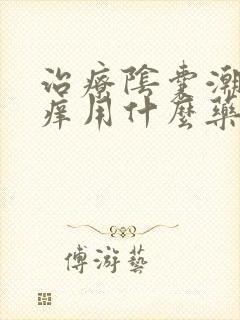 治療陰囊潮
痒用什麼藥
傅游藝